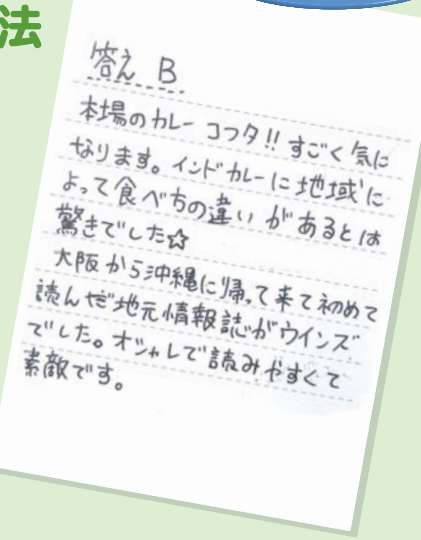 法
答え B
本場のカレー コフタ!! すごく気に
なります。インドカレーに地域に
よって食べ方の違いがあるとは
驚きでした☆
大阪から沖縄に帰って来て初めて
読んだ地元情報誌がウインズ
でした。オシャレで読みやすくて
素敵です。